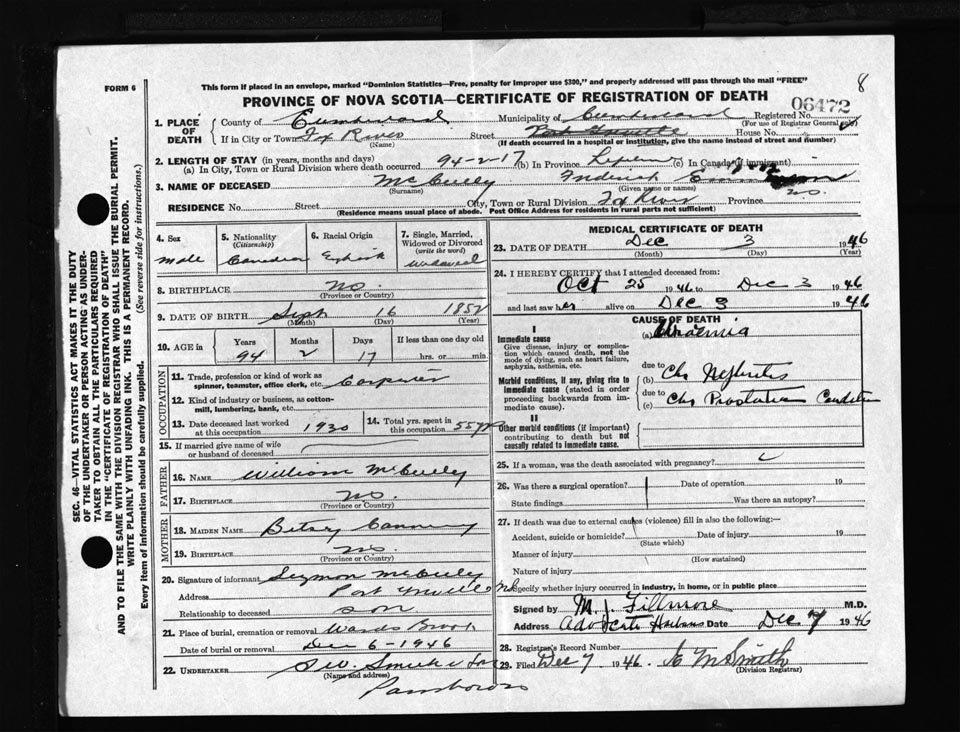 8
FORM 6
This form if placed in an envelope, marked "Dominion Statistics—Free, penalty for improper use $300," and properly addressed will pass through the mail "FREE"
PROVINCE OF NOVA SCOTIA—CERTIFICATE OF REGISTRATION OF DEATH
06472
1. PLACE OF DEATH
County of Cumberland Municipality of Cumberland Registered No.
(For use of Registrar General only)
If in City or Town Fox River Street Port Greville House No.
(Name) (If death occurred in a hospital or institution, give the name instead of street and number)
2. LENGTH OF STAY (in years, months and days)
(a) In City, Town or Rural Division where death occurred 94-2-17 (b) In Province Lifetime (c) In Canada (if immigrant)
3. NAME OF DECEASED McCully Fredrick
(Surname) (Given name or names)
RESIDENCE No. Street City, Town or Rural Division Fox River Province N.S.
(Residence means usual place of abode. Post Office Address for residents in rural parts not sufficient)
4. Sex
male
5. Nationality
(Citizenship)
Canadian
6. Racial Origin
English
7. Single, Married, Widowed or Divorced
(write the word)
Widowed
8. BIRTHPLACE N.S.
(Province or Country)
9. DATE OF BIRTH Sept 16 1852
(Month) (Day) (Year)
10. AGE in
Years Months Days If less than one day old
94 2 17 hrs. or min.
OCCUPATION
11. Trade, profession or kind of work as
spinner, teamster, office clerk, etc. Carpenter
12. Kind of industry or business, as cotton-
mill, lumbering, bank, etc.
13. Date deceased last worked
at this occupation 1930
14. Total yrs. spent in
this occupation 55 yrs
15. If married give name of wife
or husband of deceased
FATHER
16. NAME William McCully
17. BIRTHPLACE N.S.
MOTHER
18. MAIDEN NAME Betsy
19. BIRTHPLACE N.S.
(Province or Country)
20. Signature of informant Seymor McCully
Address Port Greville
Relationship to deceased Son
21. Place of burial, cremation or removal Wards Brook
Date of burial or removal Dec 6-1946
22. UNDERTAKER
(Name and address)
Parrsboro
MEDICAL CERTIFICATE OF DEATH
23. DATE OF DEATH Dec 3 1946
(Month) (Day) (Year)
24. I HEREBY CERTIFY that I attended deceased from:
Oct 25 1946 to Dec 3 1946
and last saw her alive on Dec 3 1946
CAUSE OF DEATH
I
Immediate cause
Give disease, injury or complication which caused death, not the mode of dying, such as heart failure, asphyxia, asthenia, etc.
(a) Uraemia
due to
Morbid conditions, if any, giving rise to immediate cause (stated in order proceeding backwards from immediate cause).
(b) Chr Nephritis
due to
(c) Chr Prostatic Condition
II
Other morbid conditions (if important) contributing to death but not causally related to immediate cause.
25. If a woman, was the death associated with pregnancy?
26. Was there a surgical operation? Date of operation 19
State findings Was there an autopsy?
27. If death was due to external causes (violence) fill in also the following:—
Accident, suicide or homicide? Date of injury 19
(State which)
Manner of injury
(How sustained)
Nature of injury
Specify whether injury occurred in industry, in home, or in public place
Signed by M. J. Fillmore M.D.
Address Advocate Harbour Date Dec 7 1946
28. Registrar's Record Number
29. Filed Dec 7 1946. E M Smith
(Division Registrar)
SEC. 46—VITAL STATISTICS ACT MAKES IT THE DUTY
OF THE UNDERTAKER OR PERSON ACTING AS UNDER-
TAKER TO OBTAIN ALL THE PARTICULARS REQUIRED
IN THE "CERTIFICATE OF REGISTRATION OF DEATH"
AND TO FILE THE SAME WITH THE DIVISION REGISTRAR WHO SHALL ISSUE THE BURIAL PERMIT.
WRITE PLAINLY WITH UNFADING INK. THIS IS A PERMANENT RECORD.
Every item of information should be carefully supplied. (See reverse side for instructions.)